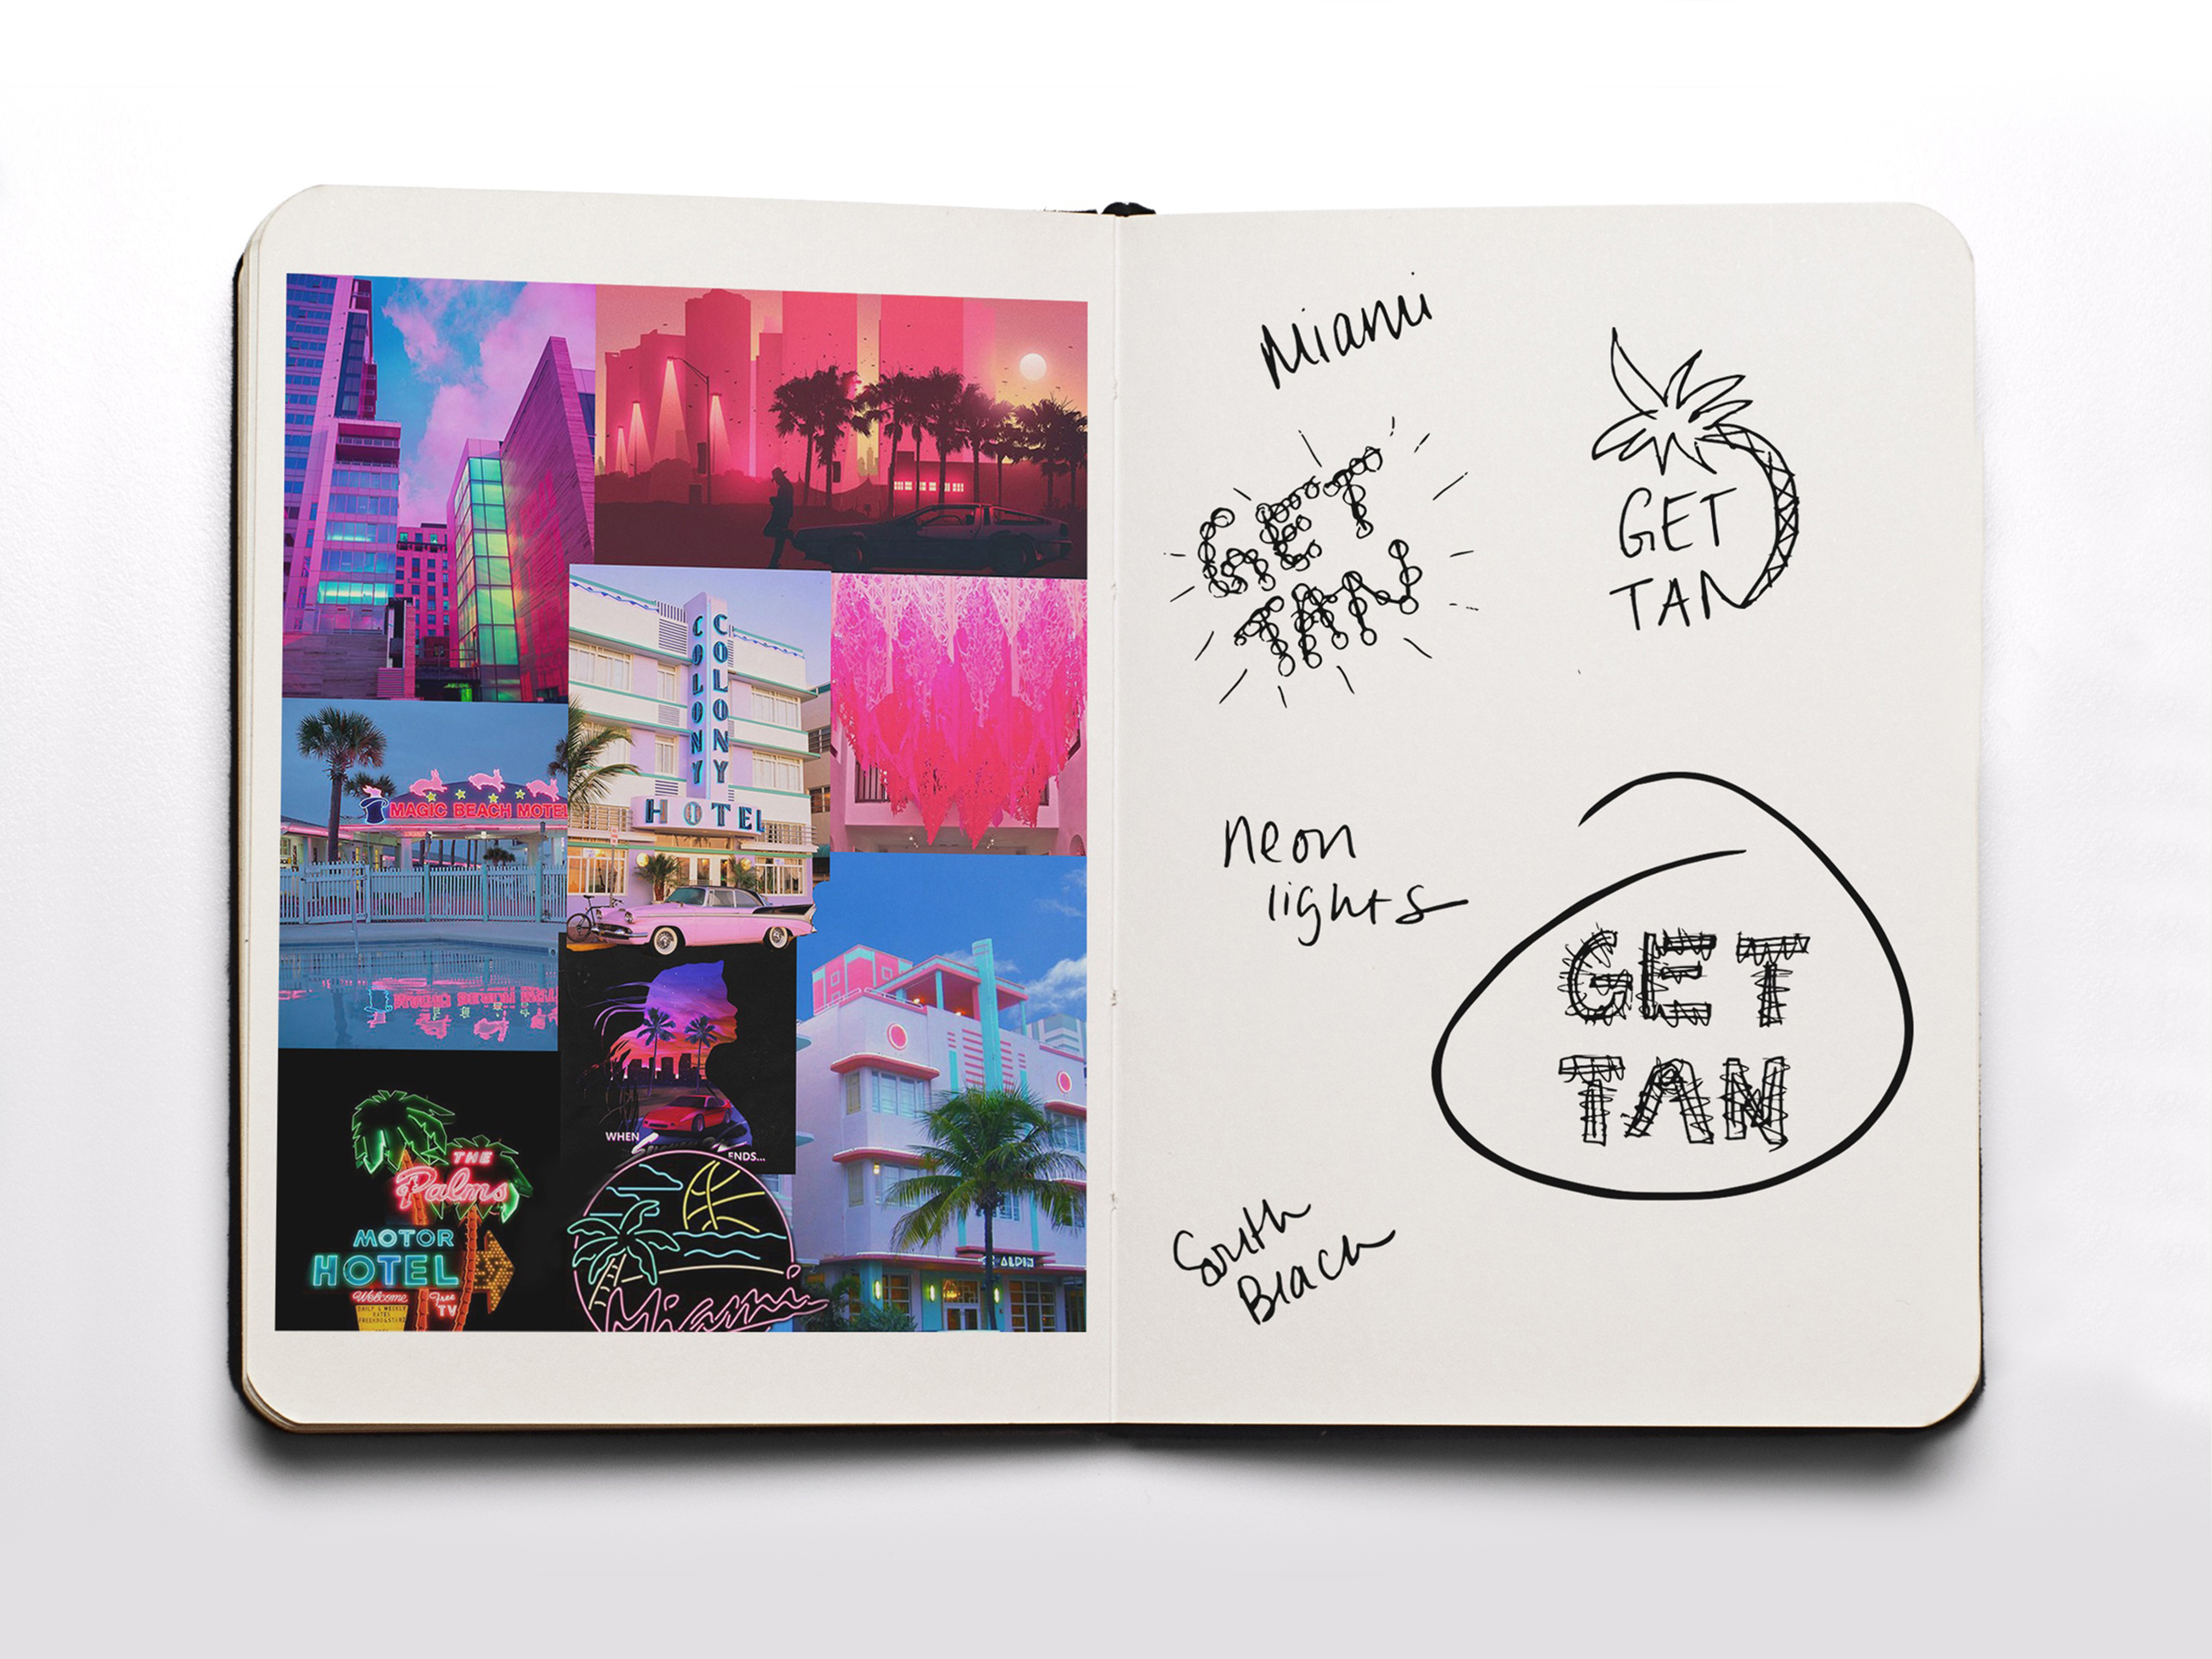 COLONY
COLONY
HOTEL
MAGIC BEACH MOTEL
WHEN
ENDS...
THE
Palms
MOTOR
HOTEL
Welcome
Free
TV
DAILY & WEEKLY
RATES
Miami
Miami
GET
TAN
GET
TAN
neon
lights
GET
TAN
South
Beach